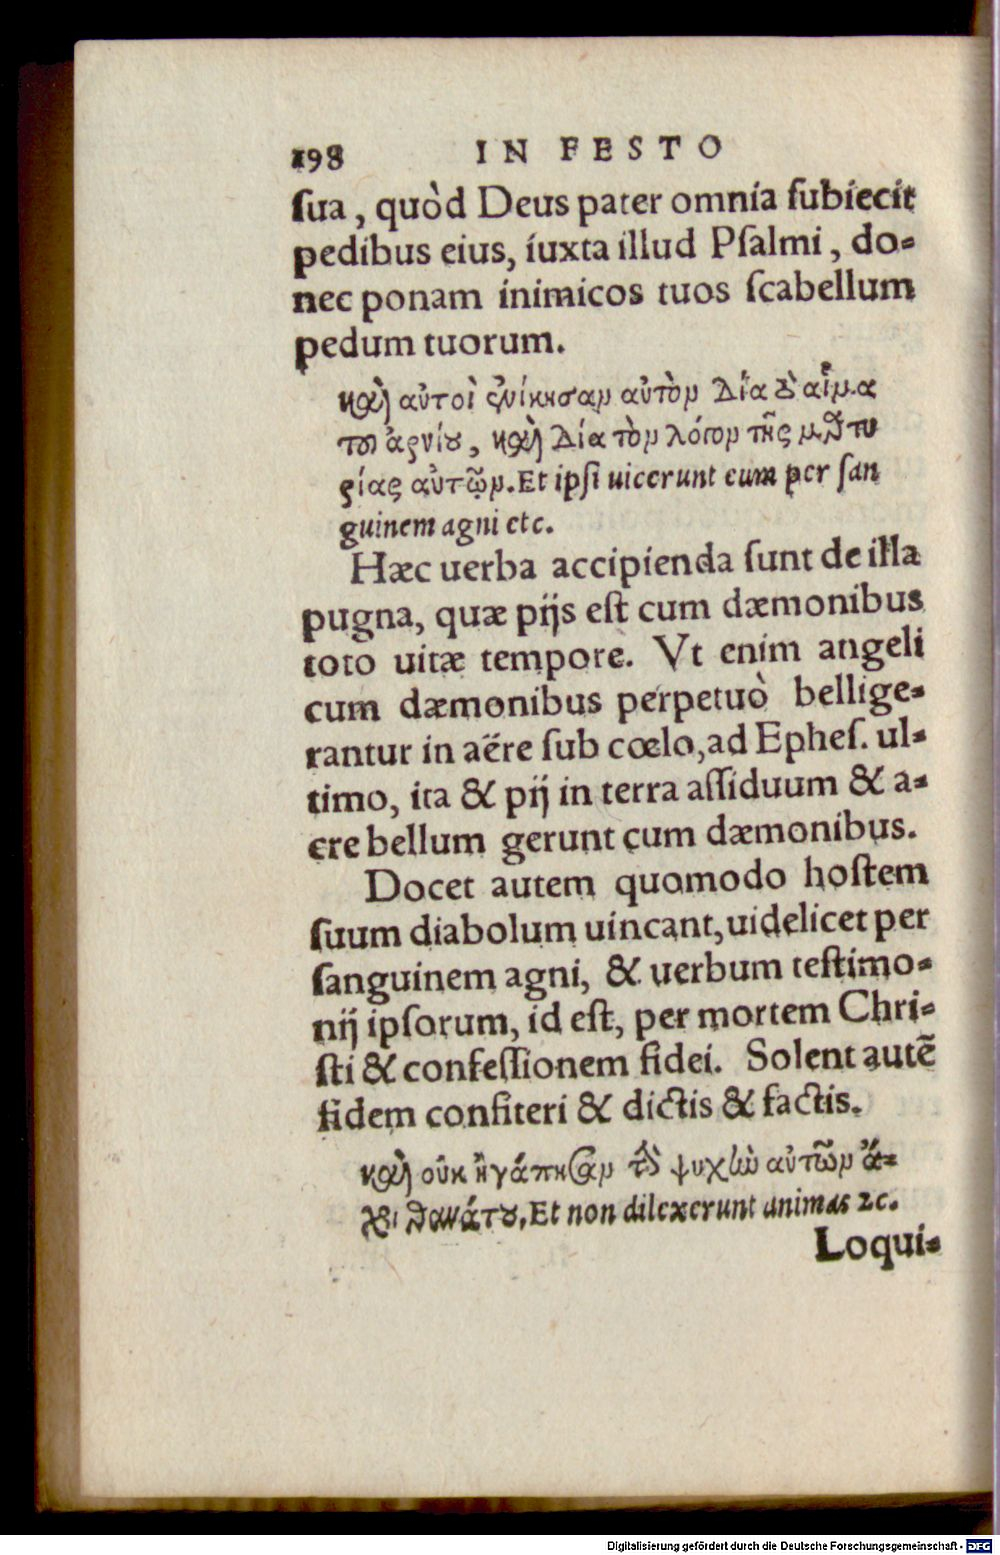 198 IN FESTO
ſua, quòd Deus pater omnia ſubiecit
pedibus eius, iuxta illud Pſalmi, do-
nec ponam inimicos tuos ſcabellum
pedum tuorum.
καὶ αὐτοὶ ἐνίκησαν αὐτὸν διὰ τὸ αἷμα
τοῦ ἀρνίου, καὶ διὰ τὸν λόγον τῆς μαρτυ
ρίας αὐτῶν. Et ipſi uicerunt eum per ſan
guinem agni etc.
Hæc uerba accipienda ſunt de illa
pugna, quæ pijs eſt cum dæmonibus
toto uitæ tempore. Vt enim angeli
cum dæmonibus perpetuò bellige-
rantur in aëre ſub cœlo, ad Epheſ. ul-
timo, ita & pij in terra aſſiduum & a-
cre bellum gerunt cum dæmonibus.
Docet autem quomodo hoſtem
ſuum diabolum uincant, uidelicet per
ſanguinem agni, & uerbum teſtimo-
nij ipſorum, id eſt, per mortem Chri-
ſti & confeſſionem fidei. Solent autē
fidem confiteri & dictis & factis.
καὶ οὐκ ἠγάπησαν τὴν ψυχὴν αὐτῶν ἄ-
χρι θανάτου. Et non dilexerunt animas ⁊c.
Loqui-
Digitalisierung gefördert durch die Deutsche Forschungsgemeinschaft - DFG